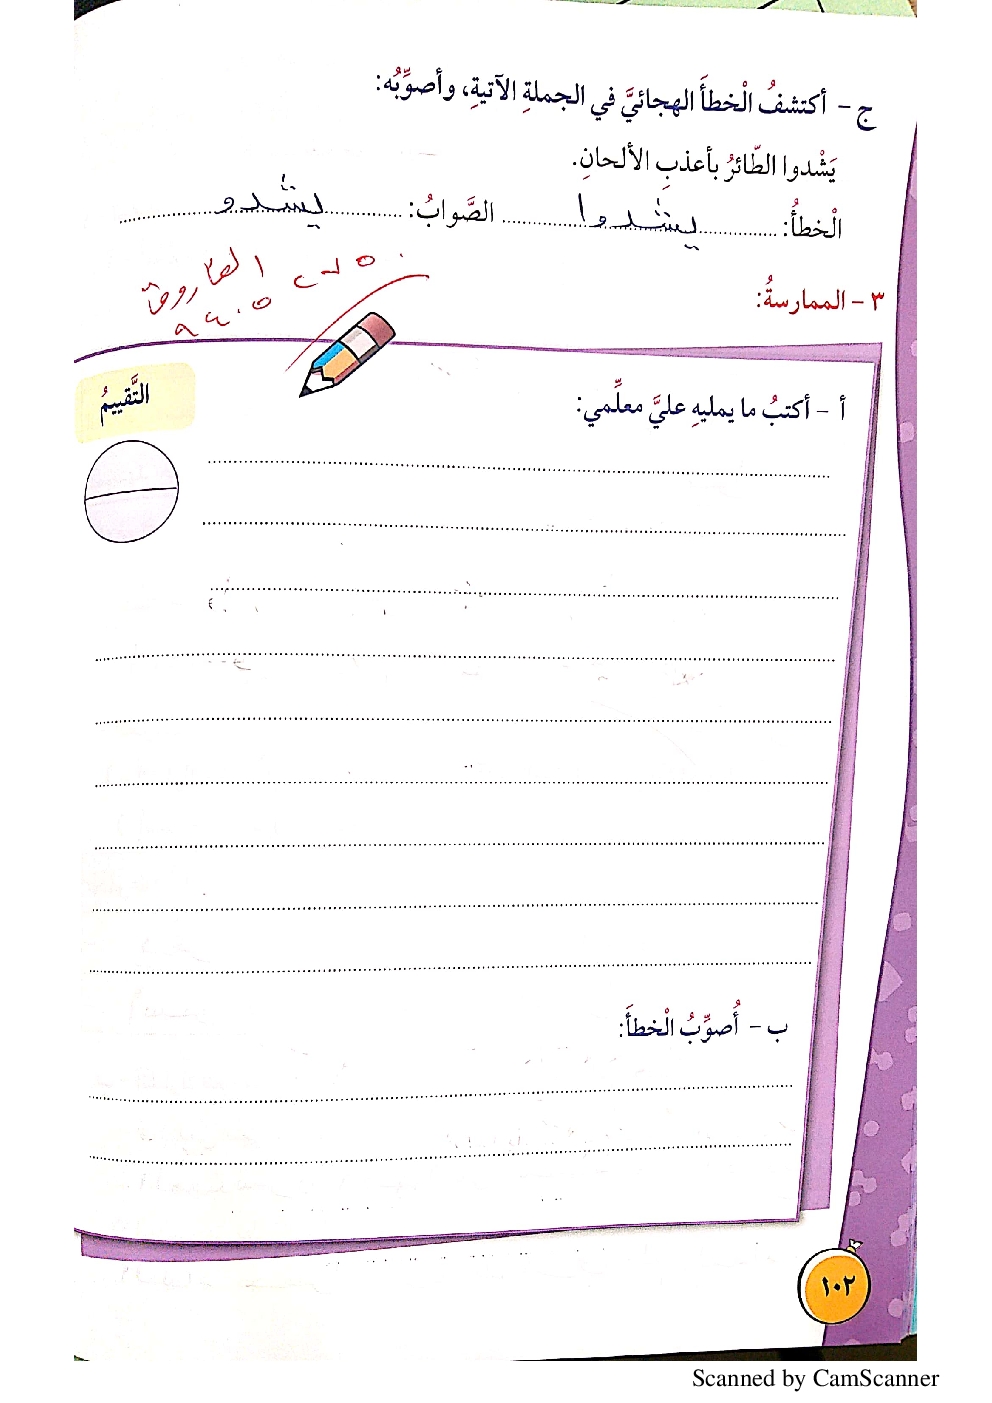 ج - أكتشفُ الْخطأَ الهجائيَّ في الجملةِ الآتيةِ، وأصوِّبُه:
يَشْدوا الطّائرُ بأعذبِ الألحانِ.
الْخطأُ: يشدوا الصَّوابُ: يشدو
٣ - الممارسةُ:
التَّقييمُ
أ - أكتبُ ما يمليهِ عليَّ معلِّمي:
ب - أُصوِّبُ الْخطأَ:
١٠٢
Scanned by CamScanner